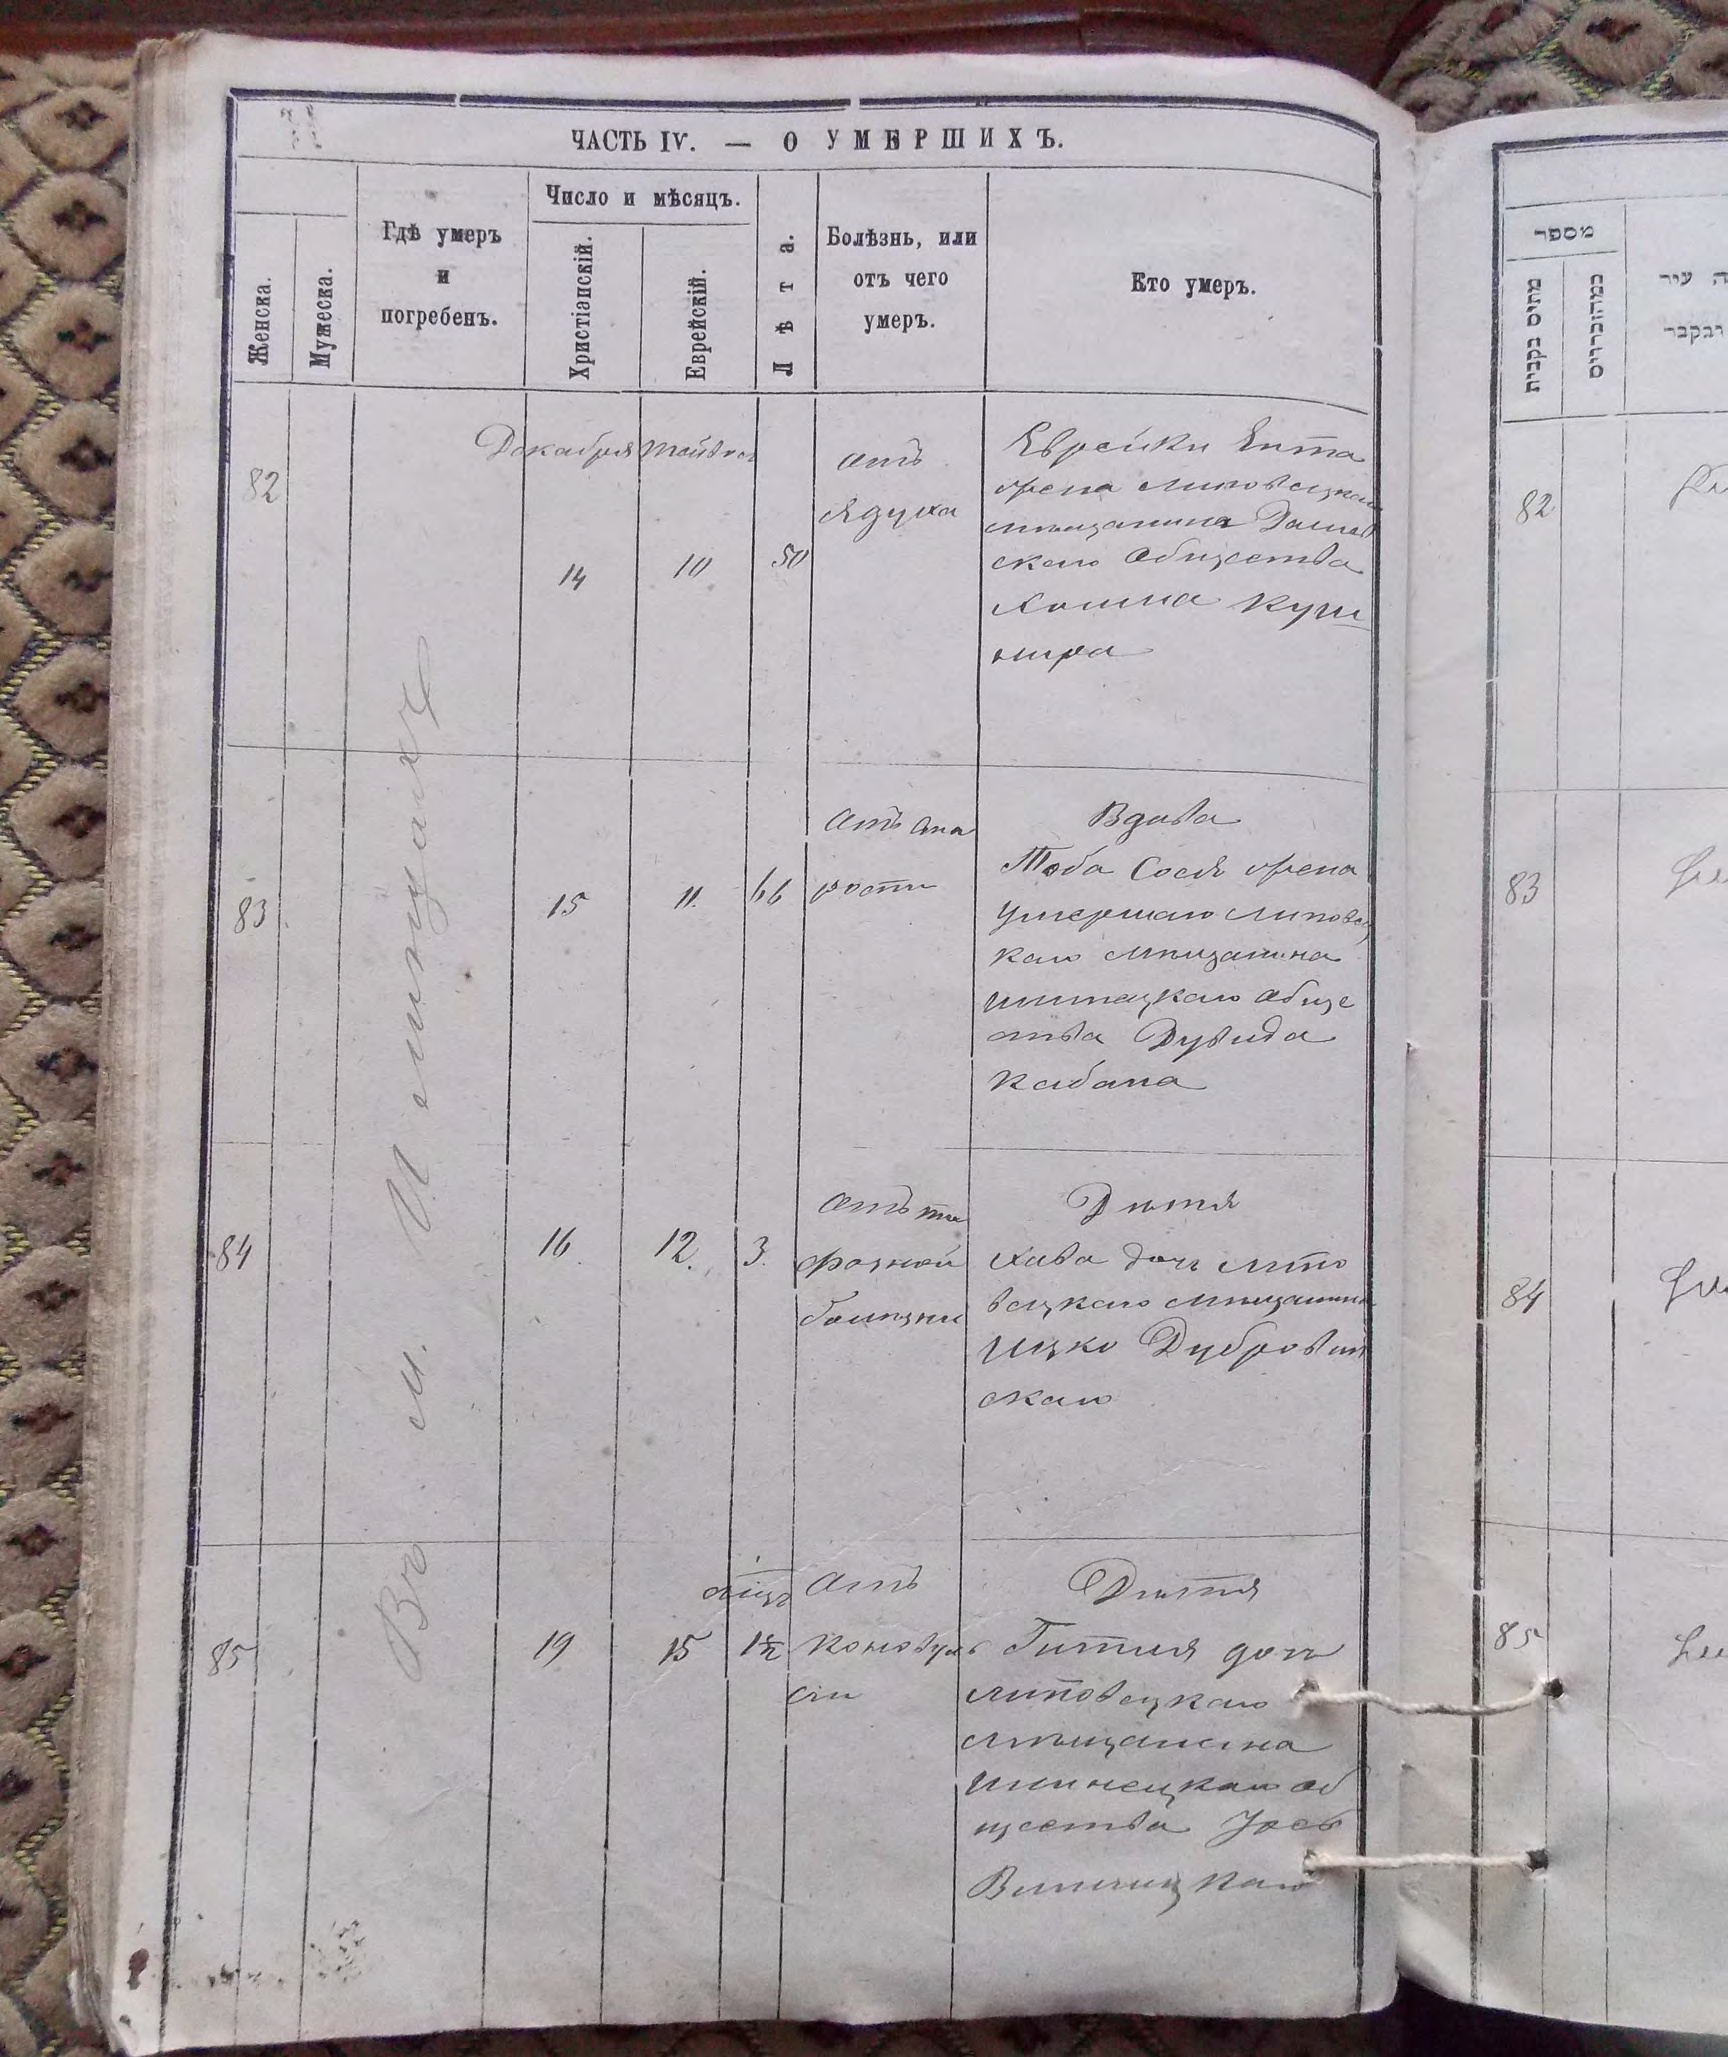 ЧАСТЬ IV. — О УМЕРШИХЪ.
Женска.
Мужеска.
Гдѣ умеръ
и
погребенъ.
Число и мѣсяцъ.
Христіанскій.
Еврейскій.
Лѣта.
Болѣзнь, или
отъ чего
умеръ.
Кто умеръ.
Въ м. Ильинцахъ
82
Декабря
14
10
50
отъ
Ядуха
Еврейки Ента
жена липовецкаго
мѣщанина Дашев
скаго общества
Хаима Куш
нира
83
15
11.
66
отъ ста
рости
Вдова
Тоба Сося жена
умершаго Липовец
каго мѣщанина
общес
тва Дувида
Кабана
84
16.
12.
3.
отъ ти
фозной
болѣзни
Дитя
Хава дочь липо
вецкаго мѣщанина
Ицко Дубровин
скаго
85
19
15
1½
отъ
Конвуль
сіи
Дитя
Гитля дочь
липовецкаго
мѣщанина
Илинецкаго об
щества Јось
Винницкаго
מספר
82
83
84
85